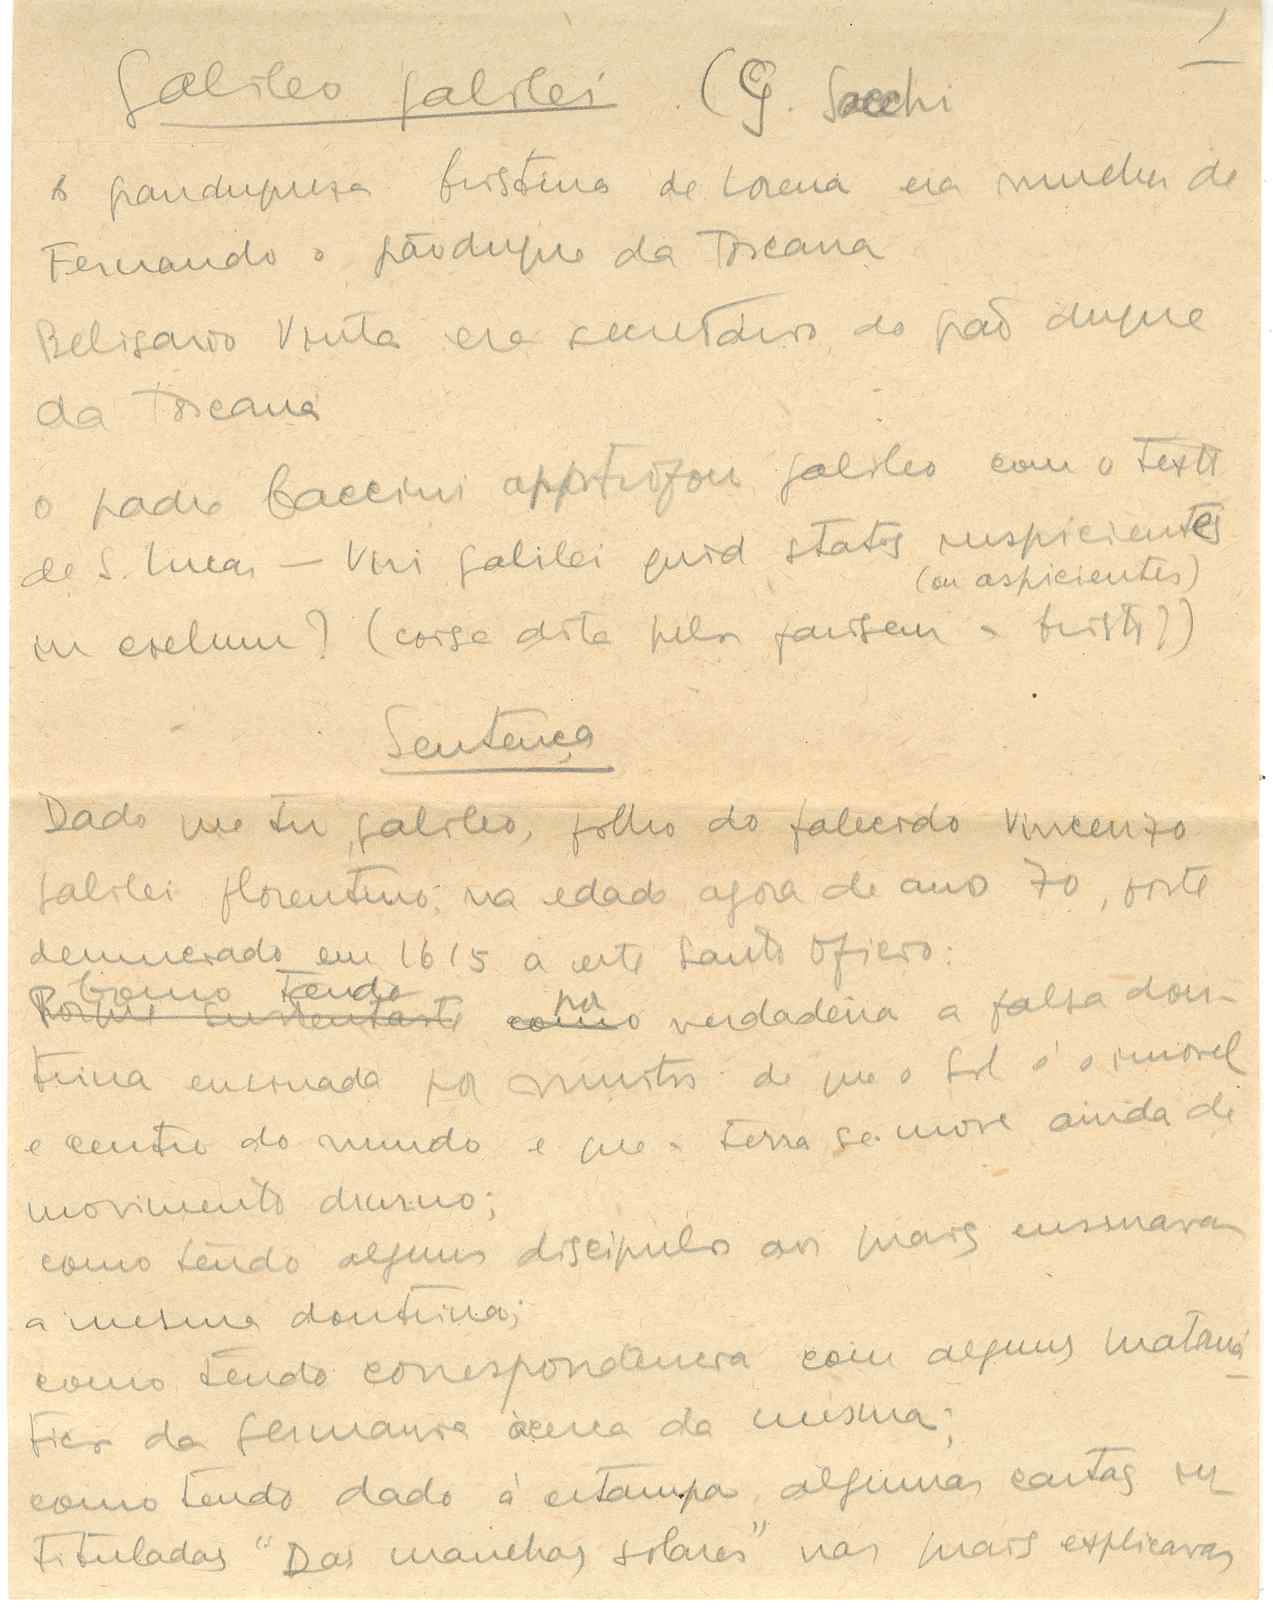 1
Galileo Galilei (G. Sacchi
A granduquesa Cristina de Lorena era mulher de
Fernando o grão duque da Toscana
Belisario Vinta era secretário do grão duque
da Toscana
o padre Caccini apostrofou Galileo com o texto
de S. Lucas — Viri Galilei quid statis suspicientes
(ou aspicientes)
in coelum? (coisa dita pelos fariseus a Cristo?)
Sentença
Dado que tu, Galileo, filho do falecido Vincenzo
Galilei florentino, na edade agora de anos 70, foste
denunciado em 1615 a este Santo Oficio:
Como tendo por
Porque sustentaste como verdadeira a falsa dou-
trina ensinada por muitos de que o Sol é o imovel
e centro do mundo e que a terra se move ainda de
movimento diurno;
como tendo alguns discipulos aos quais ensinavas
a mesma doutrina;
como tendo correspondência com alguns matemá-
ticos da Germania ácerca da mesma;
como tendo dado á estampa algumas cartas in
tituladas "Das manchas solares" nas quais explicavas